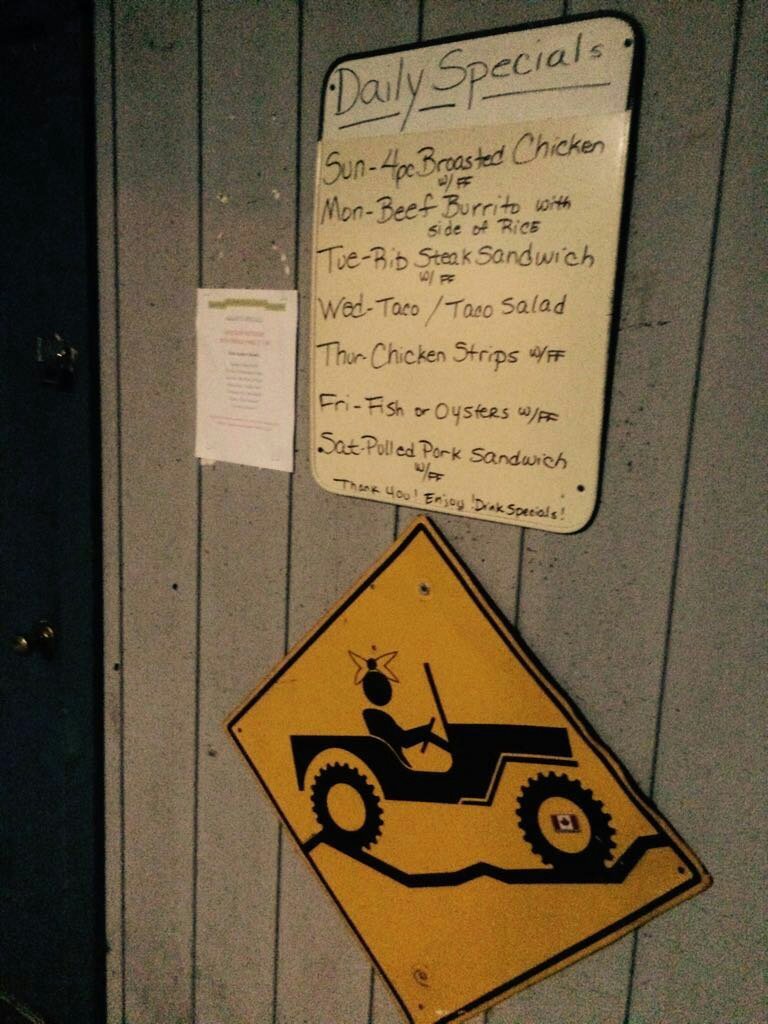 Daily Specials
Sun-4pc Broasted Chicken
w/FF
Mon-Beef Burrito with
side of Rice
Tue-Rib Steak Sandwich
w/FF
Wed-Taco / Taco Salad
Thur-Chicken Strips w/FF
Fri-Fish or Oysters w/FF
Sat-Pulled Pork Sandwich
w/FF
Thank You! Enjoy! Drink Specials!